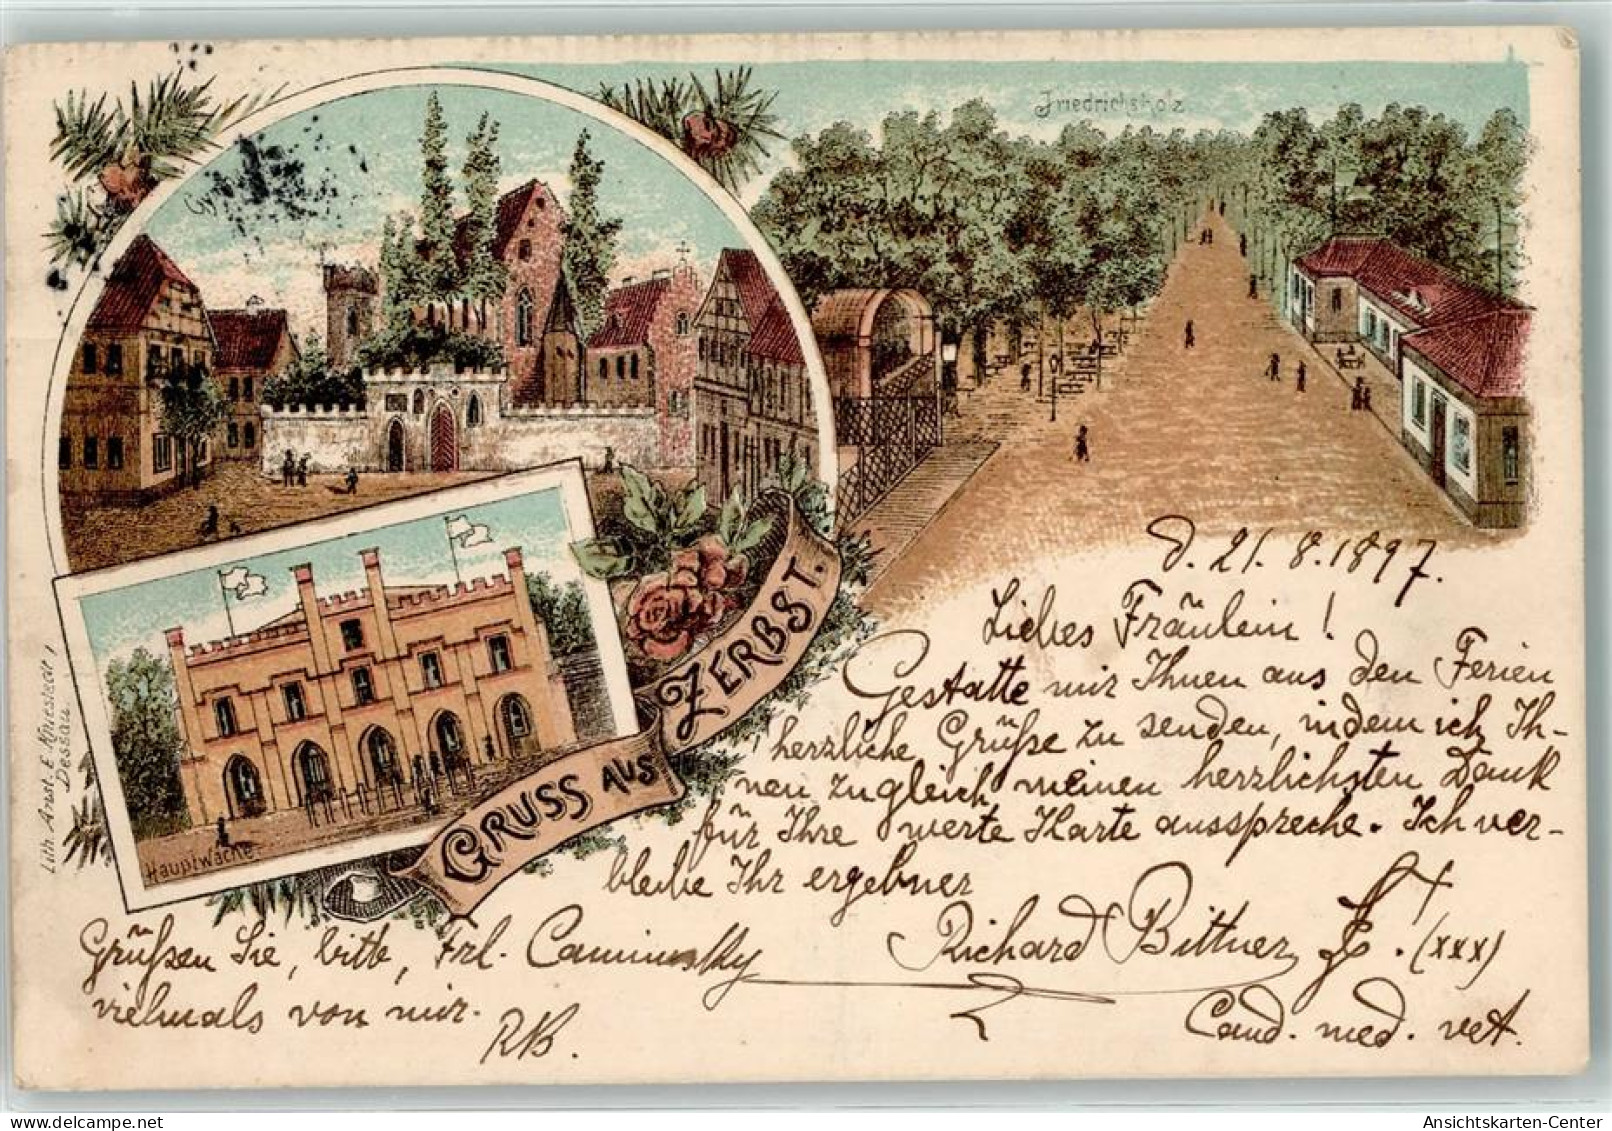 Friedrichsholz
Gy
Hauptwache
GRUSS AUS
ZERBST.
Lith. Anst. E. Knesreck, Dessau.
d. 21. 8. 1897.
Liebes Fräulein!
Gestatte mir Ihnen aus den Ferien
herzliche Grüße zu senden, indem ich Ih-
nen zugleich meinen herzlichsten Dank
für Ihre werte Karte ausspreche. Ich ver-
bleibe Ihr ergebner
Richard Bittner (xxx)
Cand. med. vet.
Grüßen Sie, bitte, Frl. Caminsky
vielmals von mir.
RB.
Ansichtskarten-Center